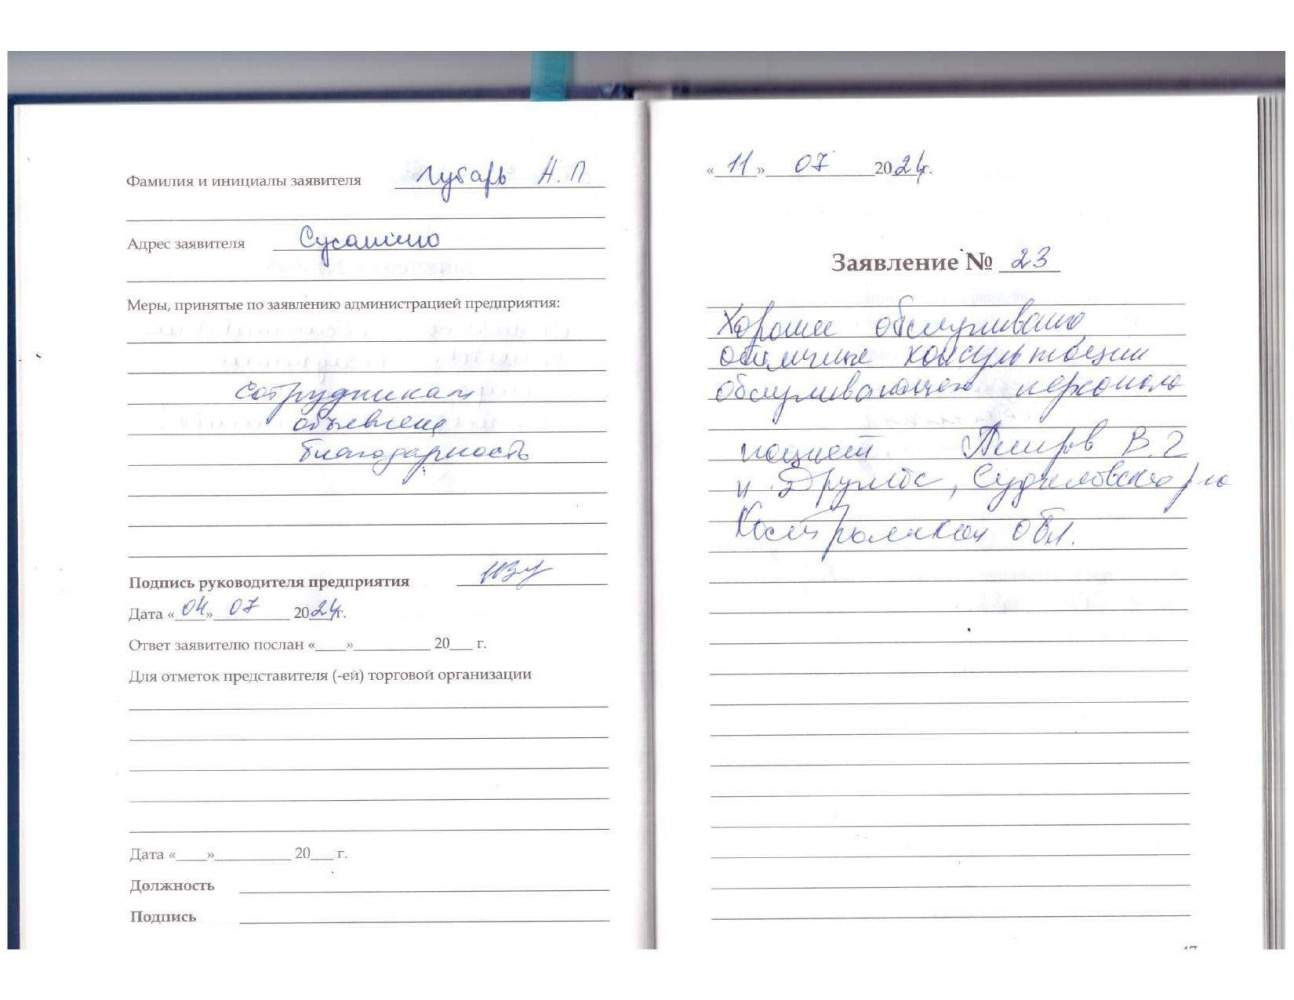 Фамилия и инициалы заявителя Губарь Н.П
Адрес заявителя Сусанино
Меры, принятые по заявлению администрацией предприятия:
сотрудникам
объявлена
благодарность
Подпись руководителя предприятия
Дата «04» 07 2024г.
Ответ заявителю послан «___»__________ 20___ г.
Для отметок представителя (-ей) торговой организации
Дата «____»__________ 20___ г.
Должность
Подпись
«11» 07 2024г.
Заявление № 23
Хорошее обслуживание
отличные консультации
обслуживающего персонала
пациент В.Г
Судиславского р-на
Костромской обл.